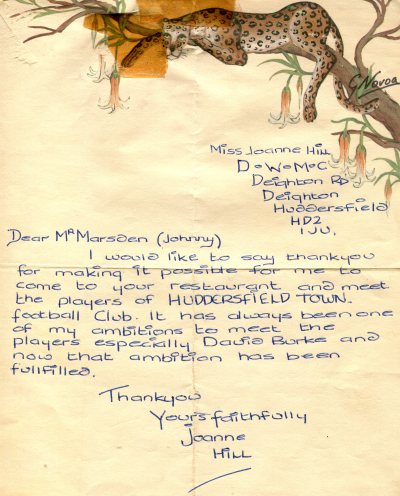 G Novoa
Miss Joanne Hill
D.W.M.C
Deighton RD
Deighton
Huddersfield
HD2
1JU.
Dear Mr Marsden (Johnny)
I would like to say thankyou
for making it possible for me to
come to your restaurant and meet
the players of HUDDERSFIELD TOWN.
football Club. It has always been one
of my ambitions to meet the
players especially David Burke and
now that ambition has been
fullfilled.
Thankyou
Yours faithfully
Joanne
HILL